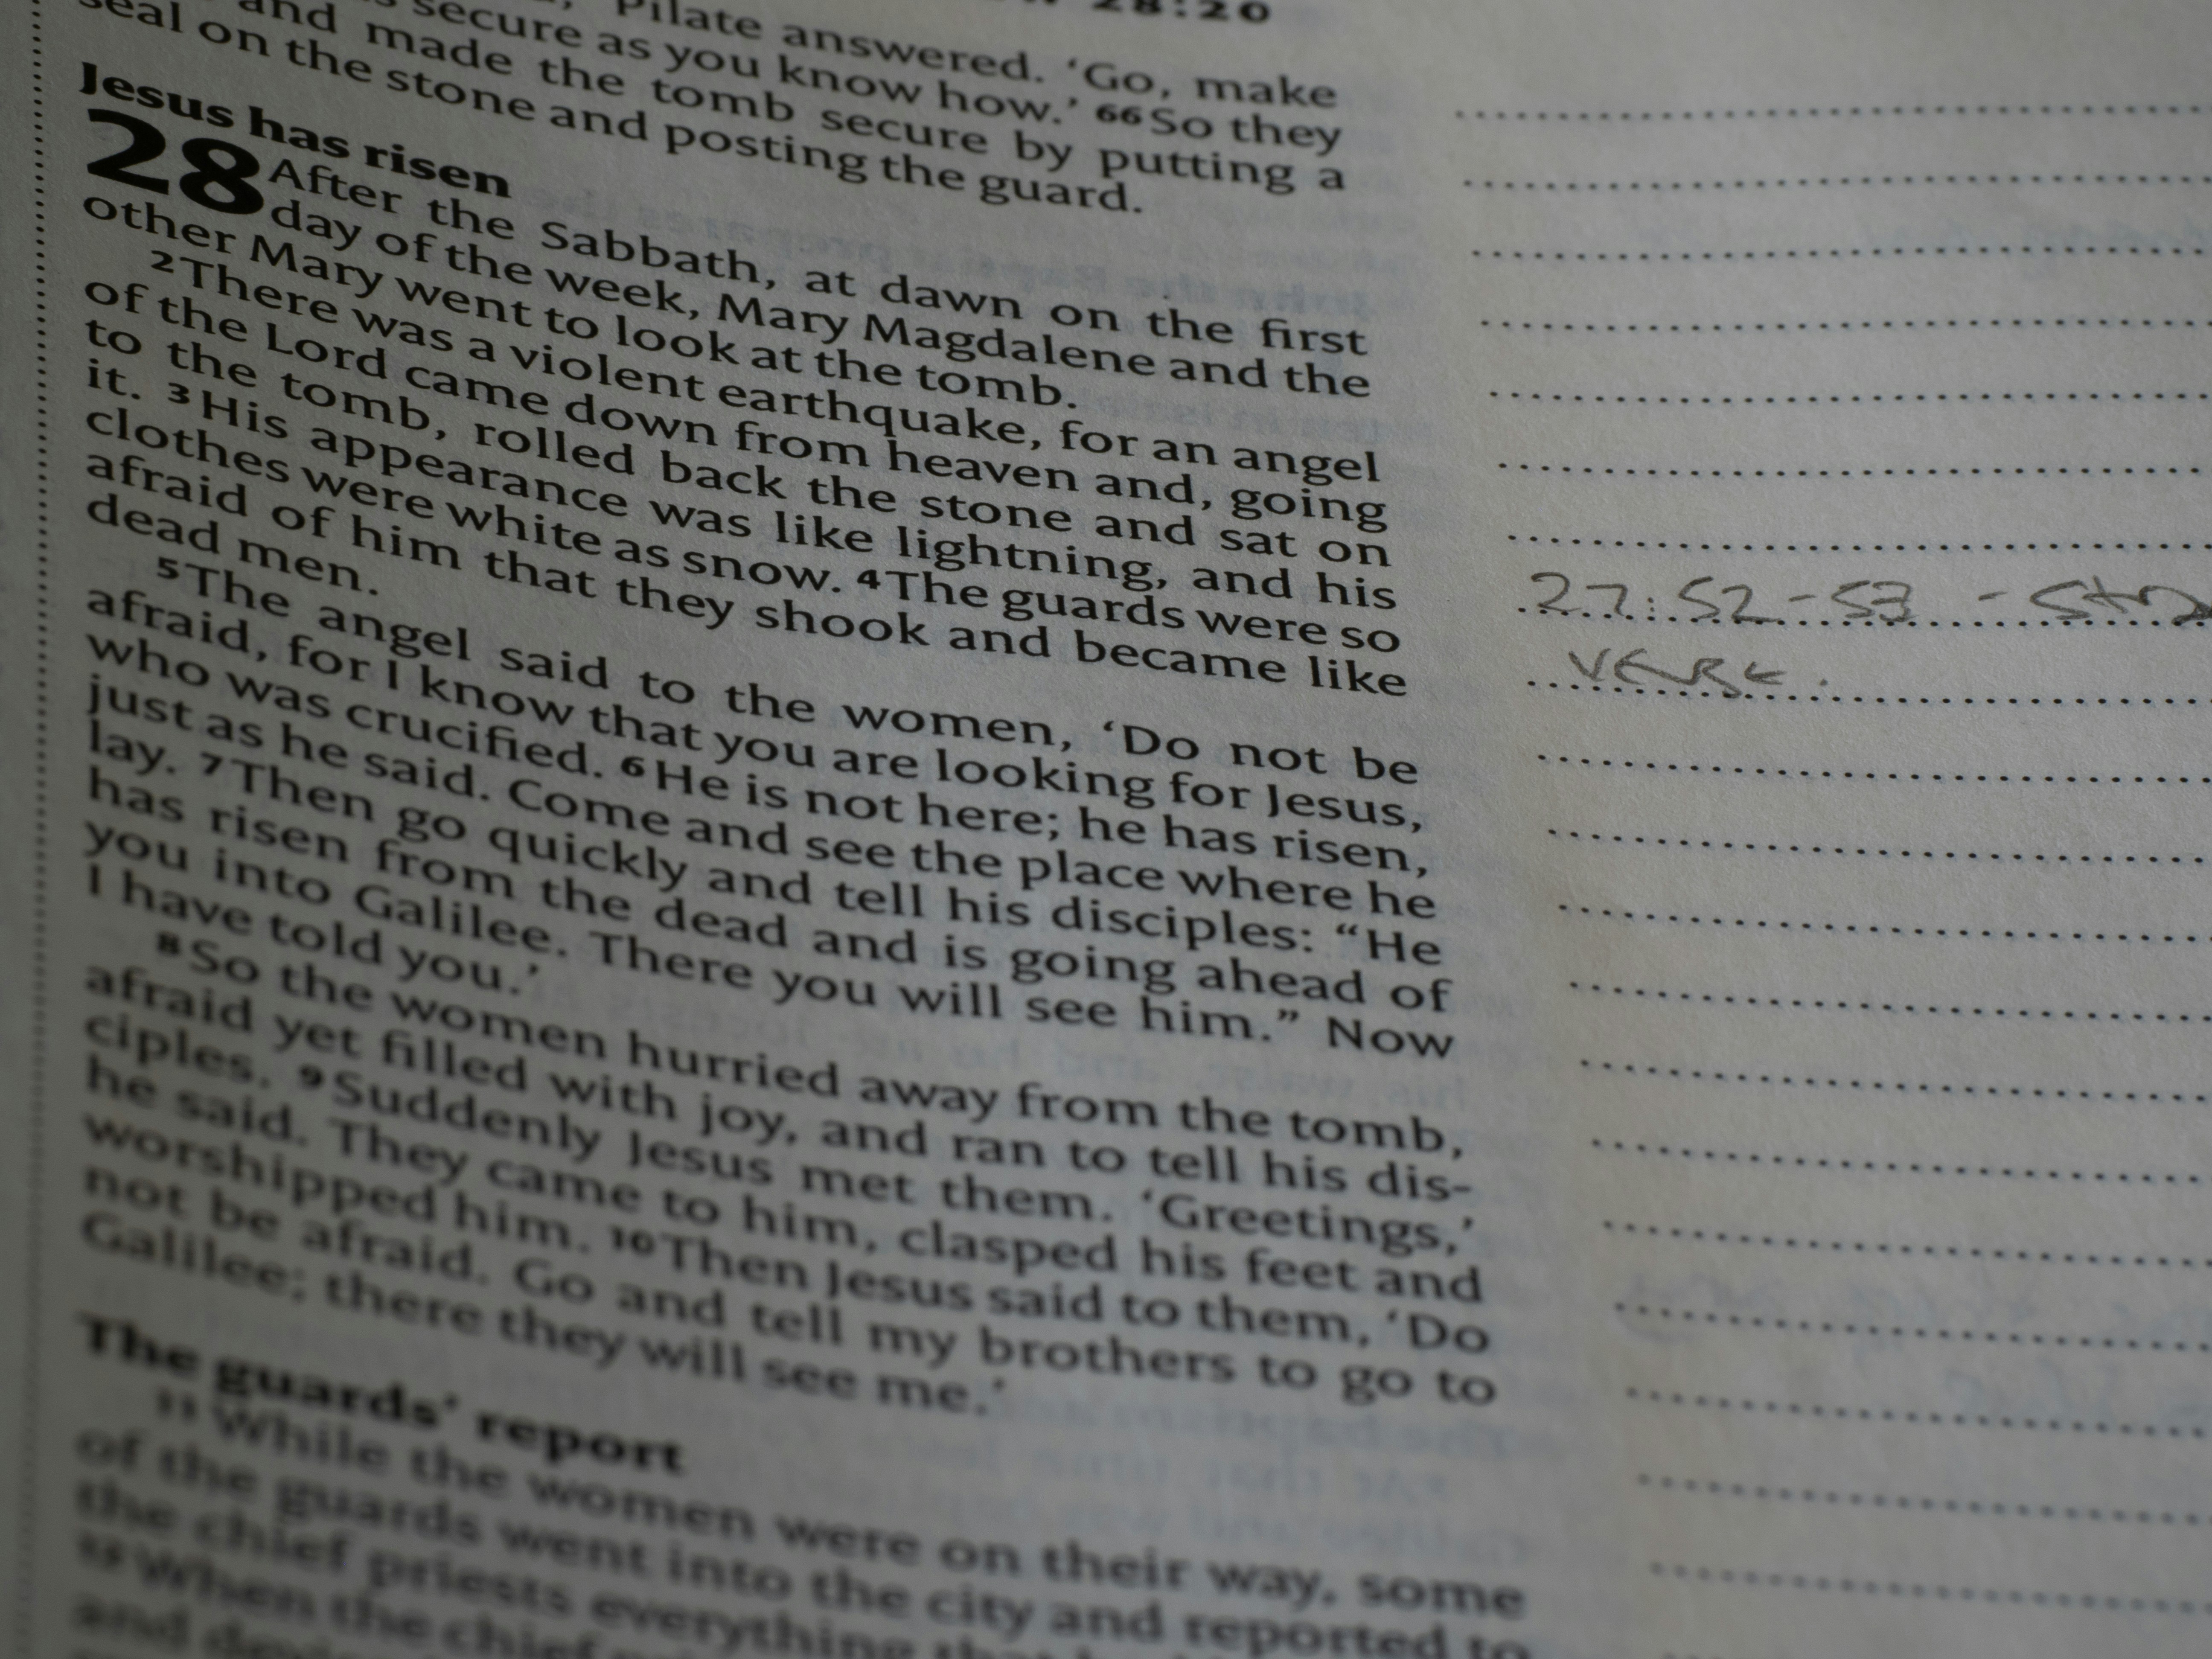 28:20
Pilate answered. ‘Go, make
secure as you know how.’ 66 So they
and made the tomb secure by putting a
seal on the stone and posting the guard.
Jesus has risen
28 After the Sabbath, at dawn on the first
day of the week, Mary Magdalene and the
other Mary went to look at the tomb.
2 There was a violent earthquake, for an angel
of the Lord came down from heaven and, going
to the tomb, rolled back the stone and sat on
it. 3 His appearance was like lightning, and his
clothes were white as snow. 4 The guards were so
afraid of him that they shook and became like
dead men.
5 The angel said to the women, ‘Do not be
afraid, for I know that you are looking for Jesus,
who was crucified. 6 He is not here; he has risen,
just as he said. Come and see the place where he
lay. 7 Then go quickly and tell his disciples: “He
has risen from the dead and is going ahead of
you into Galilee. There you will see him.” Now
I have told you.’
8 So the women hurried away from the tomb,
afraid yet filled with joy, and ran to tell his dis-
ciples. 9 Suddenly Jesus met them. ‘Greetings,’
he said. They came to him, clasped his feet and
worshipped him. 10 Then Jesus said to them, ‘Do
not be afraid. Go and tell my brothers to go to
Galilee; there they will see me.’
The guards’ report
11 While the women were on their way, some
of the guards went into the city and reported to
the chief priests everything that
12 When the chief
and
27:52-53 -
VERSE.